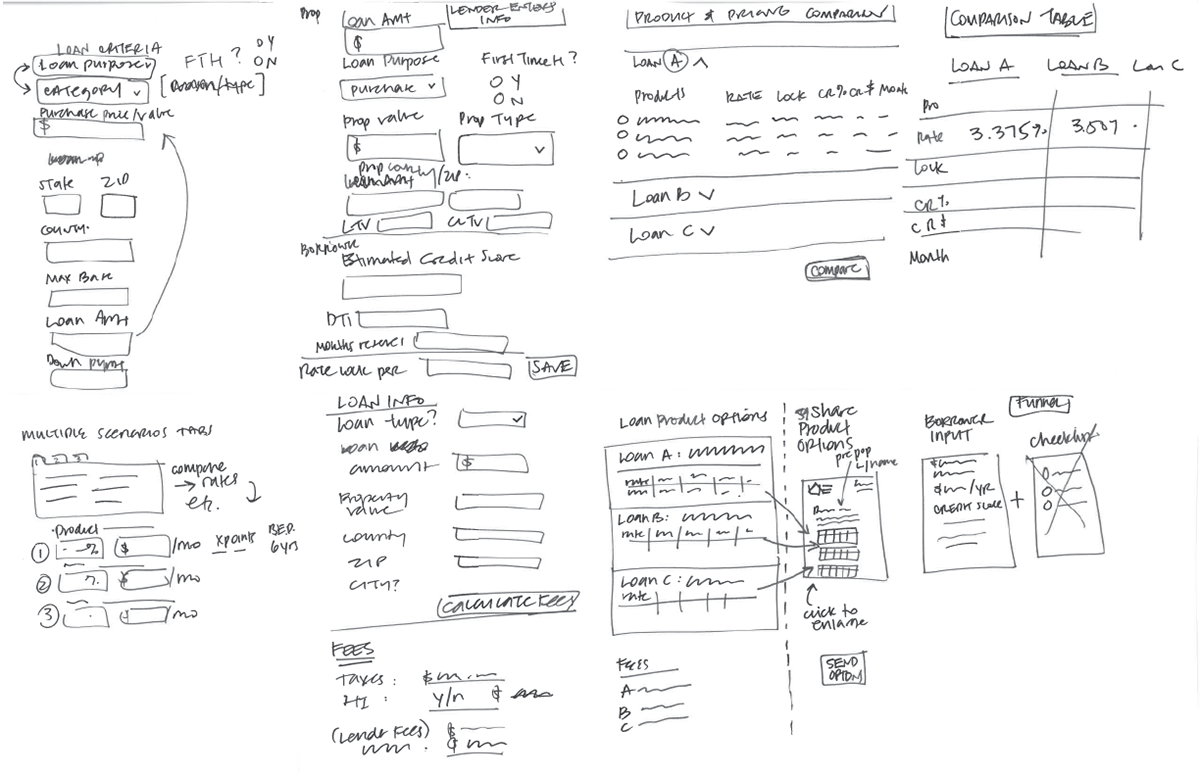 LOAN CRITERIA
Loan purpose
FTH?
O Y
O N
CATEGORY
Purchase price/value
$
State
ZIP
County
Max Base
Loan Amt
Down pymt
Prop
Loan Amt
$
LENDER ENTERS
INFO
Loan Purpose
First Time H?
Purchase
O Y
O N
Prop value
Prop Type
$
Prop county/zip
LTV
CLTV
Borrower
Estimated Credit Score
DTI
Months reserves
Rate lock per
SAVE
PRODUCT & PRICING COMPARISON
LOAN A
Products
RATE
LOCK
CR%
CR$
Month
Loan B
Loan C
Compare
COMPARISON TABLE
LOAN A
LOAN B
Loan C
Pro
Rate
3.375%
Lock
CR%
CR$
Month
MULTIPLE SCENARIOS TABS
1 2 3
compare
→ rates
etc.
Product
1 % $ /mo
xpoints
B.E.P.
6yrs
2 % $ /mo
3 /mo
LOAN INFO
Loan type?
Loan
amount
$
Property
value
County
ZIP
CITY?
CALCULATE FEES
FEES
Taxes: $
HI: Y/N $
(Lender Fees) $
$
Loan Product Options
Loan A:
rate
Loan B:
rate
Loan C:
rate
FEES
A
B
C
Share
Product
Options
pre pop
w/name
click to
enlarge
SEND
OPTIONS
BORROWER
INPUT
FUNNEL
$
$ /YR
CREDIT SCORE
+
Checklist